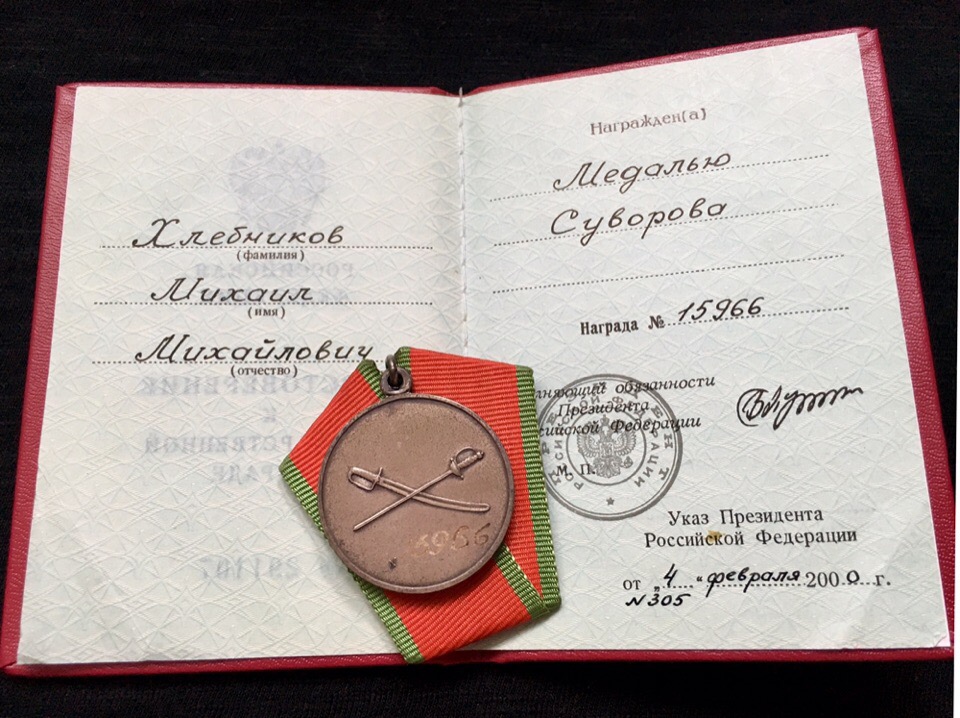 Хлебников
(фамилия)
Михаил
(имя)
Михайлович
(отчество)
Награжден(а)
Медалью
Суворова
Награда № 15966
обязанности
Президента
М. П.
ПРЕЗИДЕНТ
РОССИЙСКОЙ ФЕДЕРАЦИИ
Указ Президента
Российской Федерации
от „4 “ февраля 2000 г.
N 305